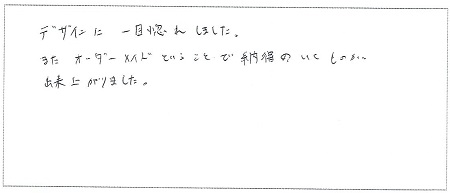 デザインに一目惚れしました。
また オーダーメイドということで納得のいくものが
出来上がりました。